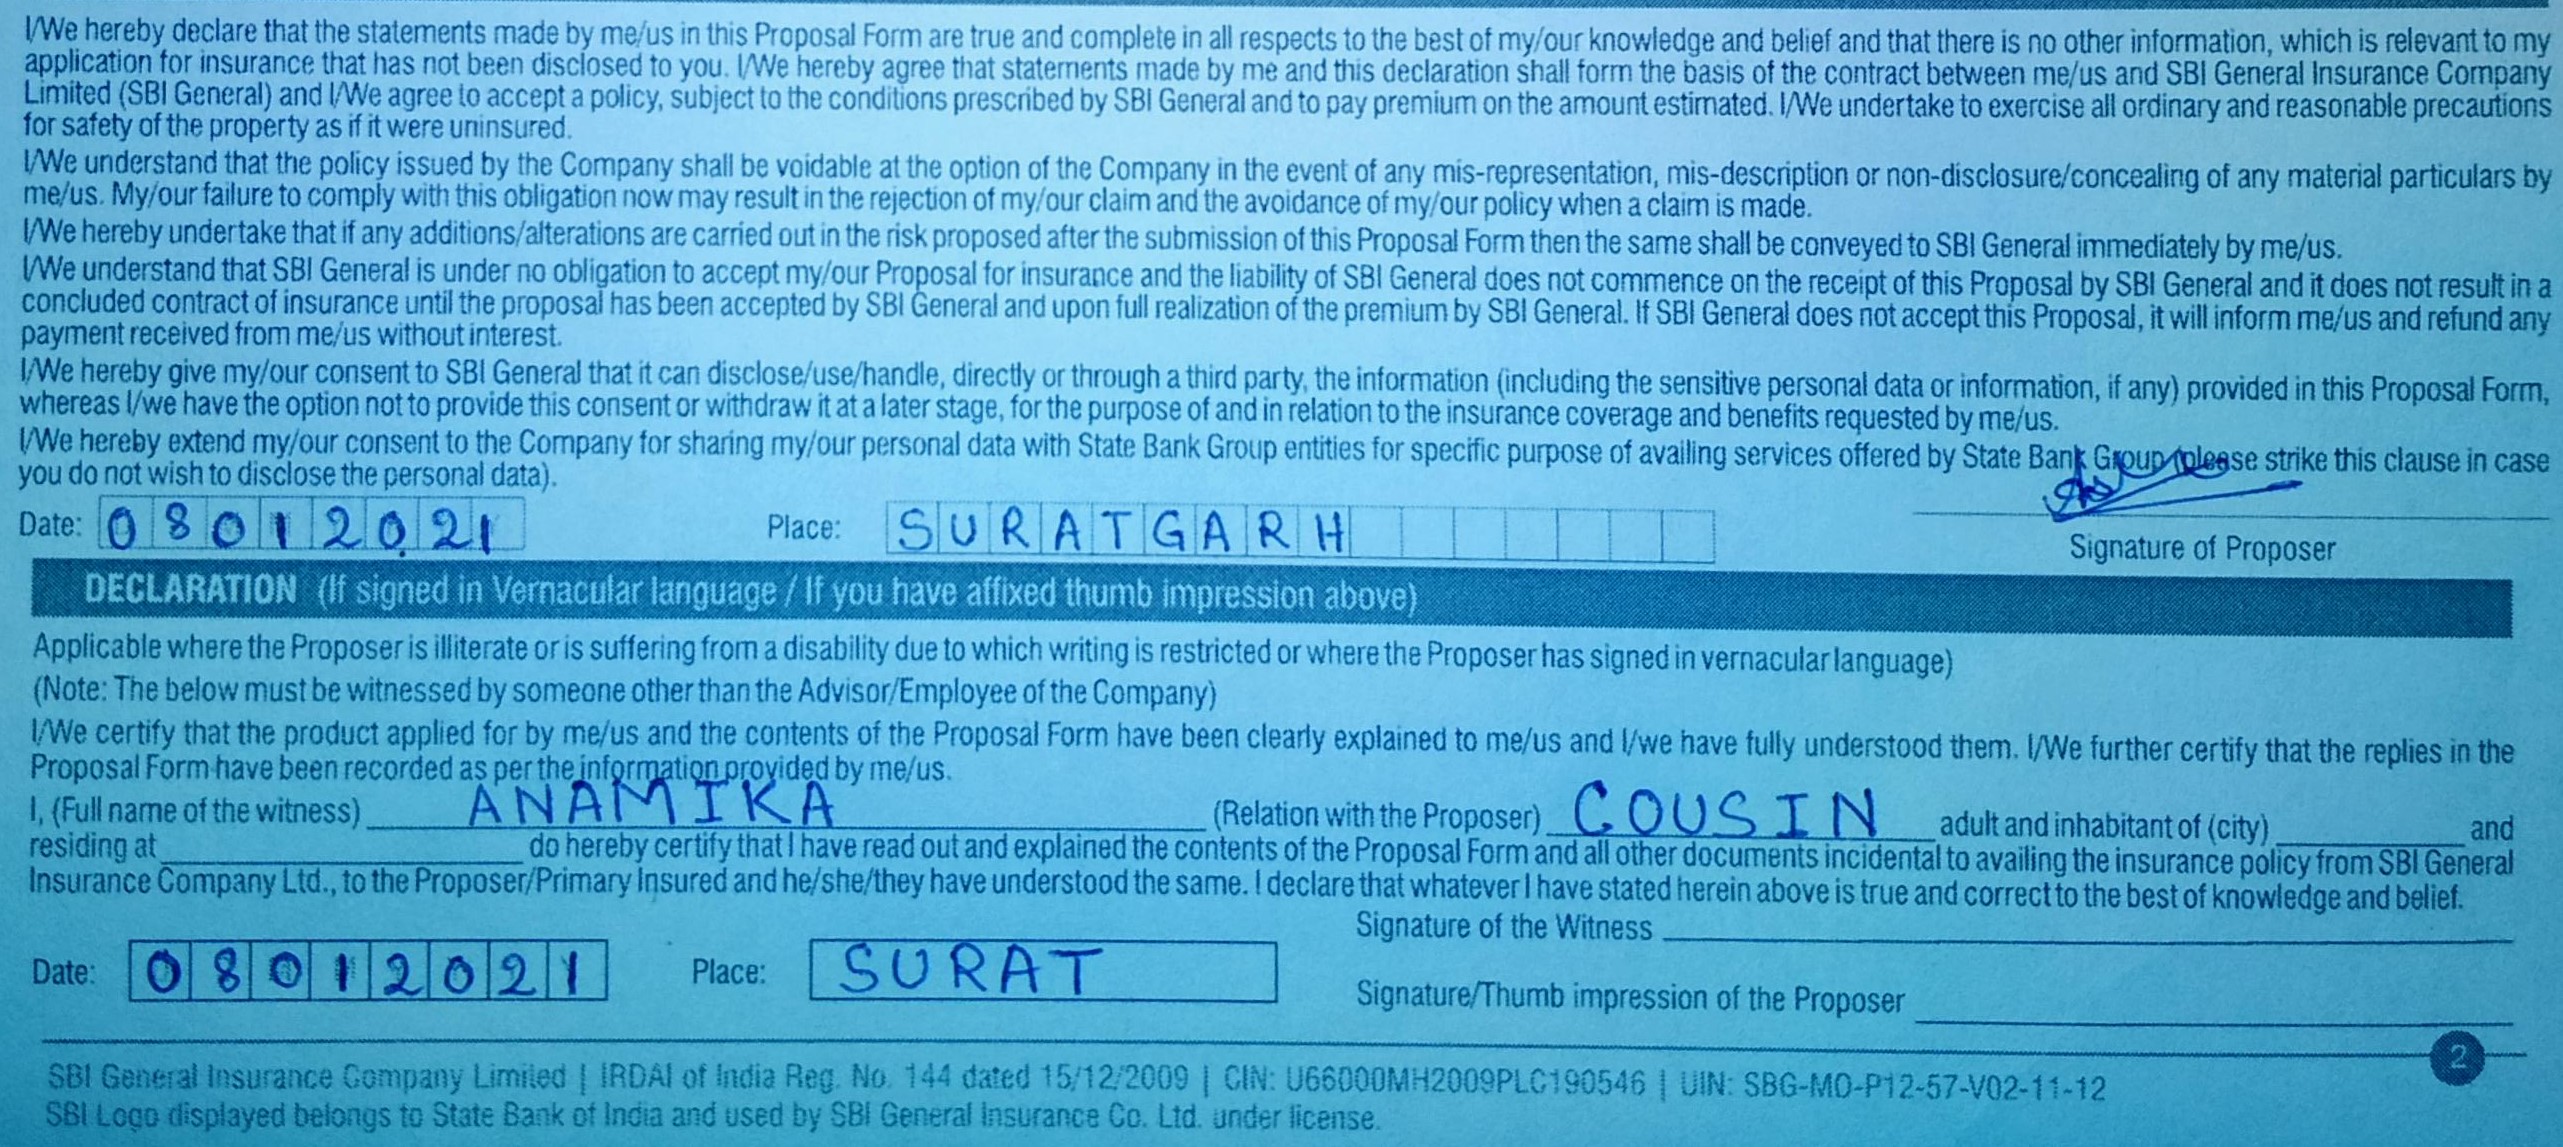 I/We hereby declare that the statements made by me/us in this Proposal Form are true and complete in all respects to the best of my/our knowledge and belief and that there is no other information, which is relevant to my
application for insurance that has not been disclosed to you. I/We hereby agree that statements made by me and this declaration shall form the basis of the contract between me/us and SBI General Insurance Company
Limited (SBI General) and I/We agree to accept a policy, subject to the conditions prescribed by SBI General and to pay premium on the amount estimated. I/We undertake to exercise all ordinary and reasonable precautions
for safety of the property as if it were uninsured.
I/We understand that the policy issued by the Company shall be voidable at the option of the Company in the event of any mis-representation, mis-description or non-disclosure/concealing of any material particulars by
me/us. My/our failure to comply with this obligation now may result in the rejection of my/our claim and the avoidance of my/our policy when a claim is made.
I/We hereby undertake that if any additions/alterations are carried out in the risk proposed after the submission of this Proposal Form then the same shall be conveyed to SBI General immediately by me/us.
I/We understand that SBI General is under no obligation to accept my/our Proposal for insurance and the liability of SBI General does not commence on the receipt of this Proposal by SBI General and it does not result in a
concluded contract of insurance until the proposal has been accepted by SBI General and upon full realization of the premium by SBI General. If SBI General does not accept this Proposal, it will inform me/us and refund any
payment received from me/us without interest.
I/We hereby give my/our consent to SBI General that it can disclose/use/handle, directly or through a third party, the information (including the sensitive personal data or information, if any) provided in this Proposal Form,
whereas I/we have the option not to provide this consent or withdraw it at a later stage, for the purpose of and in relation to the insurance coverage and benefits requested by me/us.
I/We hereby extend my/our consent to the Company for sharing my/our personal data with State Bank Group entities for specific purpose of availing services offered by State Bank Group (please strike this clause in case
you do not wish to disclose the personal data).
Date: 08012021 Place: SURATGARH
Signature of Proposer
DECLARATION (If signed in Vernacular language / If you have affixed thumb impression above)
Applicable where the Proposer is illiterate or is suffering from a disability due to which writing is restricted or where the Proposer has signed in vernacular language)
(Note: The below must be witnessed by someone other than the Advisor/Employee of the Company)
I/We certify that the product applied for by me/us and the contents of the Proposal Form have been clearly explained to me/us and I/we have fully understood them. I/We further certify that the replies in the
Proposal Form have been recorded as per the information provided by me/us.
I, (Full name of the witness) ANAMIKA (Relation with the Proposer) COUSIN adult and inhabitant of (city) and
residing at do hereby certify that I have read out and explained the contents of the Proposal Form and all other documents incidental to availing the insurance policy from SBI General
Insurance Company Ltd., to the Proposer/Primary Insured and he/she/they have understood the same. I declare that whatever I have stated herein above is true and correct to the best of knowledge and belief.
Signature of the Witness
Date: 08012021 Place: SURAT
Signature/Thumb impression of the Proposer
2
SBI General Insurance Company Limited | IRDAI of India Reg. No. 144 dated 15/12/2009 | CIN: U66000MH2009PLC190546 | UIN: SBG-MO-P12-57-V02-11-12
SBI Logo displayed belongs to State Bank of India and used by SBI General Insurance Co. Ltd. under license.